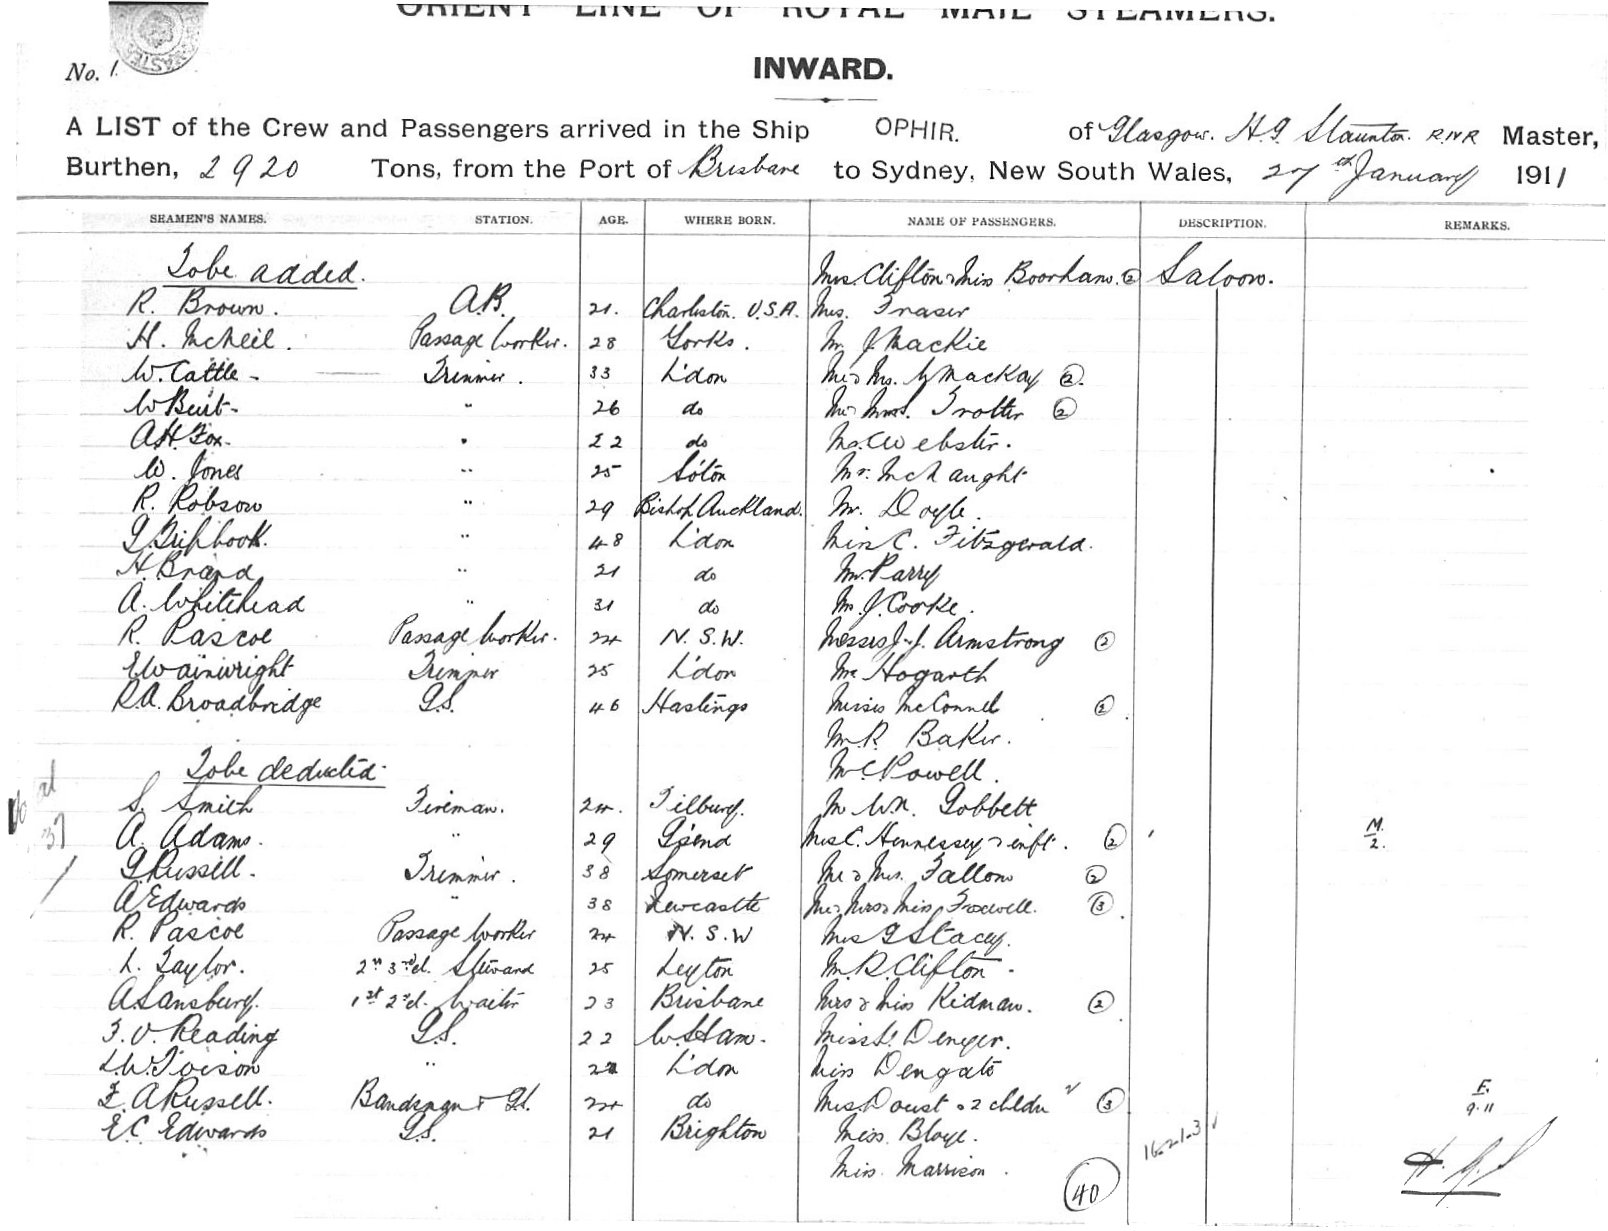 ORIENT LINE OF ROYAL MAIL STEAMERS.
INWARD.
No. 1.
A LIST of the Crew and Passengers arrived in the Ship OPHIR. of Glasgow. H.G. Staunton. R.N.R Master,
Burthen, 2920 Tons, from the Port of Brisbane to Sydney, New South Wales, 27th January 1911
SEAMEN'S NAMES. STATION. AGE. WHERE BORN. NAME OF PASSENGERS. DESCRIPTION. REMARKS.
To be added. Mrs. Clifton & Miss Boorham. 2 Saloon.
R. Brown. A.B. 21. Charleston. U.S.A. Mrs. Fraser
H. McNeil. Passage Worker. 28 Yorks. Mr J. Mackie
W. Cattle - Trimmer. 33 L'don Mr & Mrs. Mackay 2.
W Burt - " 26 do Mr & Mrs. Trotter 2
A.H. Fox - " 22 do Webster.
W. Jones " 25 So'ton Mr. McNaught
R. Robson " 29 Bishop Auckland. Mr. Doyle.
" 48 L'don Miss C. Fitzgerald.
H. Brand " 21 do Mr. Parry
A. Whitehead " 31 do Mr. J. Cooke.
R. Pascoe Passage Worker. 24 N.S.W. Messrs J. & J. Armstrong 2
E Wainwright Trimmer 25 L'don Mr Hogarth
R.A. Broadbridge G.S. 46 Hastings Misses McConnel 2.
Mr. R. Baker.
To be deducted. Mr C. Powell.
S. Smith Fireman. 24. Tilbury. Mr Wm. Gobbett
A. Adams. " 29 G'send Mrs C. Hennessey & inft. 2 M. 2.
G Russell. Trimmer. 38 Somerset Mr & Mrs. Fallon 2
A Edwards " 38 Newcastle Mr & Mrs & Miss Foxwell. 3.
R. Pascoe Passage Worker 24 N.S.W Mrs G Stacey.
L. Taylor. 2nd 3rd cl. Steward 25 Leyton Mr. R. Clifton -
A Sansbury. 1st 2nd cl. Waiter 23 Brisbane Mrs & Miss Kidman. 2
F.V. Reading G.S. 22 W. Ham. Miss L. Denyer.
L.W. Toison " 22 L'don Miss Dengate
F.A Russell. Bandsman & G.S. 24 do Mrs Doust & 2 childn 3 F. 9.11
E.C. Edwards G.S. 21 Brighton Miss. Bloye.
16-2-1-3
Miss. Marrison. 40 H.G.S